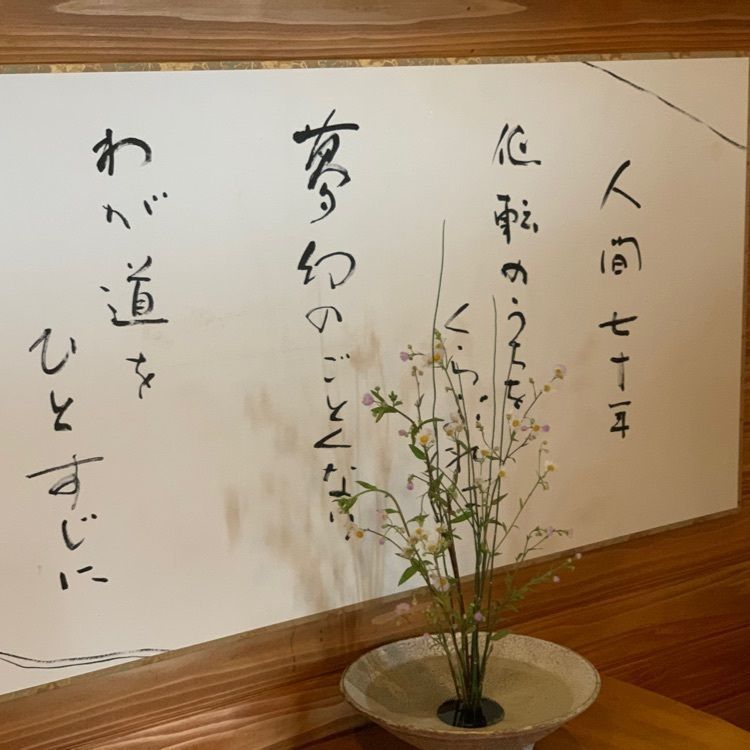 人間七十年
化転のうちを
くらぶれば
夢幻のごとくなり
わが道を
ひとすじに